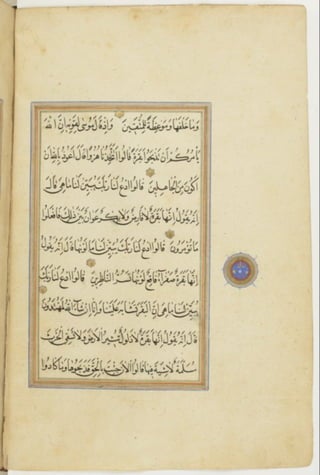 وَمَا خَلْفَهَا وَمَوْعِظَةً لِلْمُتَّقِينَ وَإِذْ قَالَ مُوسَى لِقَوْمِهِ إِنَّ اللَّهَ
يَأْمُرُكُمْ أَنْ تَذْبَحُوا بَقَرَةً قَالُوا أَتَتَّخِذُنَا هُزُوًا قَالَ أَعُوذُ بِاللَّهِ أَنْ
أَكُونَ مِنَ الْجَاهِلِينَ قَالُوا ادْعُ لَنَا رَبَّكَ يُبَيِّنْ لَنَا مَا هِيَ قَالَ
إِنَّهُ يَقُولُ إِنَّهَا بَقَرَةٌ لَا فَارِضٌ وَلَا بِكْرٌ عَوَانٌ بَيْنَ ذَلِكَ فَافْعَلُوا
مَا تُؤْمَرُونَ قَالُوا ادْعُ لَنَا رَبَّكَ يُبَيِّنْ لَنَا مَا لَوْنُهَا قَالَ إِنَّهُ يَقُولُ
إِنَّهَا بَقَرَةٌ صَفْرَاءُ فَاقِعٌ لَوْنُهَا تَسُرُّ النَّاظِرِينَ قَالُوا ادْعُ لَنَا رَبَّكَ
يُبَيِّنْ لَنَا مَا هِيَ إِنَّ الْبَقَرَ تَشَابَهَ عَلَيْنَا وَإِنَّا إِنْ شَاءَ اللَّهُ لَمُهْتَدُونَ
قَالَ إِنَّهُ يَقُولُ إِنَّهَا بَقَرَةٌ لَا ذَلُولٌ تُثِيرُ الْأَرْضَ وَلَا تَسْقِي الْحَرْثَ
مُسَلَّمَةٌ لَا شِيَةَ فِيهَا قَالُوا الْآنَ جِئْتَ بِالْحَقِّ فَذَبَحُوهَا وَمَا كَادُوا